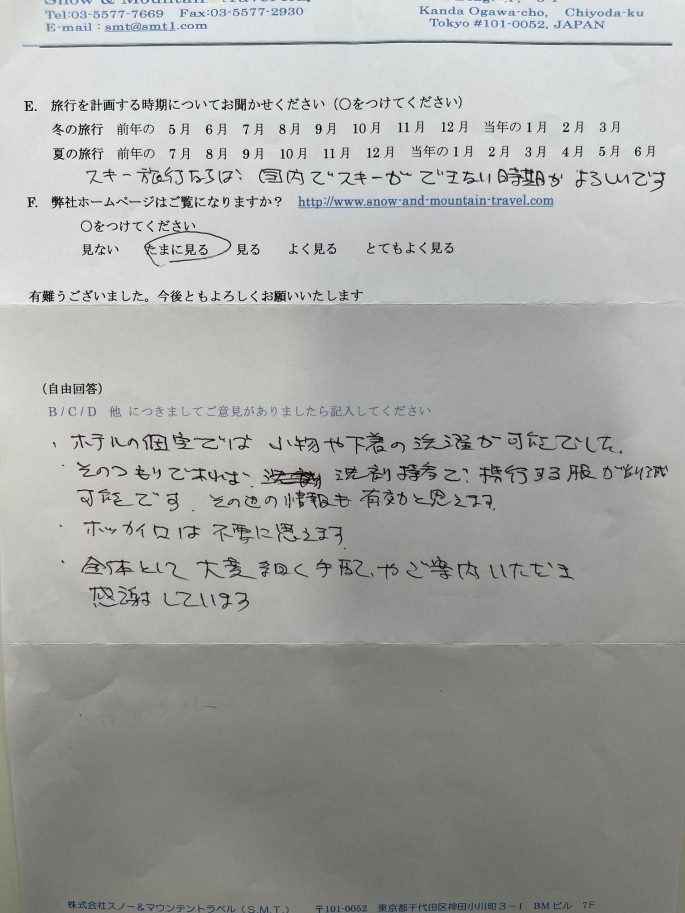 Snow & Mountain Travel
Tel:03-5577-7669 Fax:03-5577-2930
E-mail : smt@smt1.com
Kanda Ogawa-cho, Chiyoda-ku
Tokyo #101-0052, JAPAN
E. 旅行を計画する時期についてお聞かせください（○をつけてください）
冬の旅行 前年の 5月 6月 7月 8月 9月 10月 11月 12月 当年の1月 2月 3月
夏の旅行 前年の 7月 8月 9月 10月 11月 12月 当年の1月 2月 3月 4月 5月 6月
スキー旅行ならば、国内でスキーができない時期がよろしいです
F. 弊社ホームページはご覧になりますか？ http://www.snow-and-mountain-travel.com
○をつけてください
見ない たまに見る 見る よく見る とてもよく見る
有難うございました。今後ともよろしくお願いいたします
（自由回答）
B / C / D 他 につきましてご意見がありましたら記入してください
・ホテルの個室では 小物や下着の洗濯が可能でした。
・そのつもりであれば、洗剤持参で、携行する服が削減
可能です、その他の情報も有効と思えます
・ホッカイロは不要に思えます
・全体として大変細く手配、やご案内いただき
感謝しています
株式会社スノー&マウンテントラベル（S.M.T.） 〒101-0052 東京都千代田区神田小川町3－1 BMビル 7F